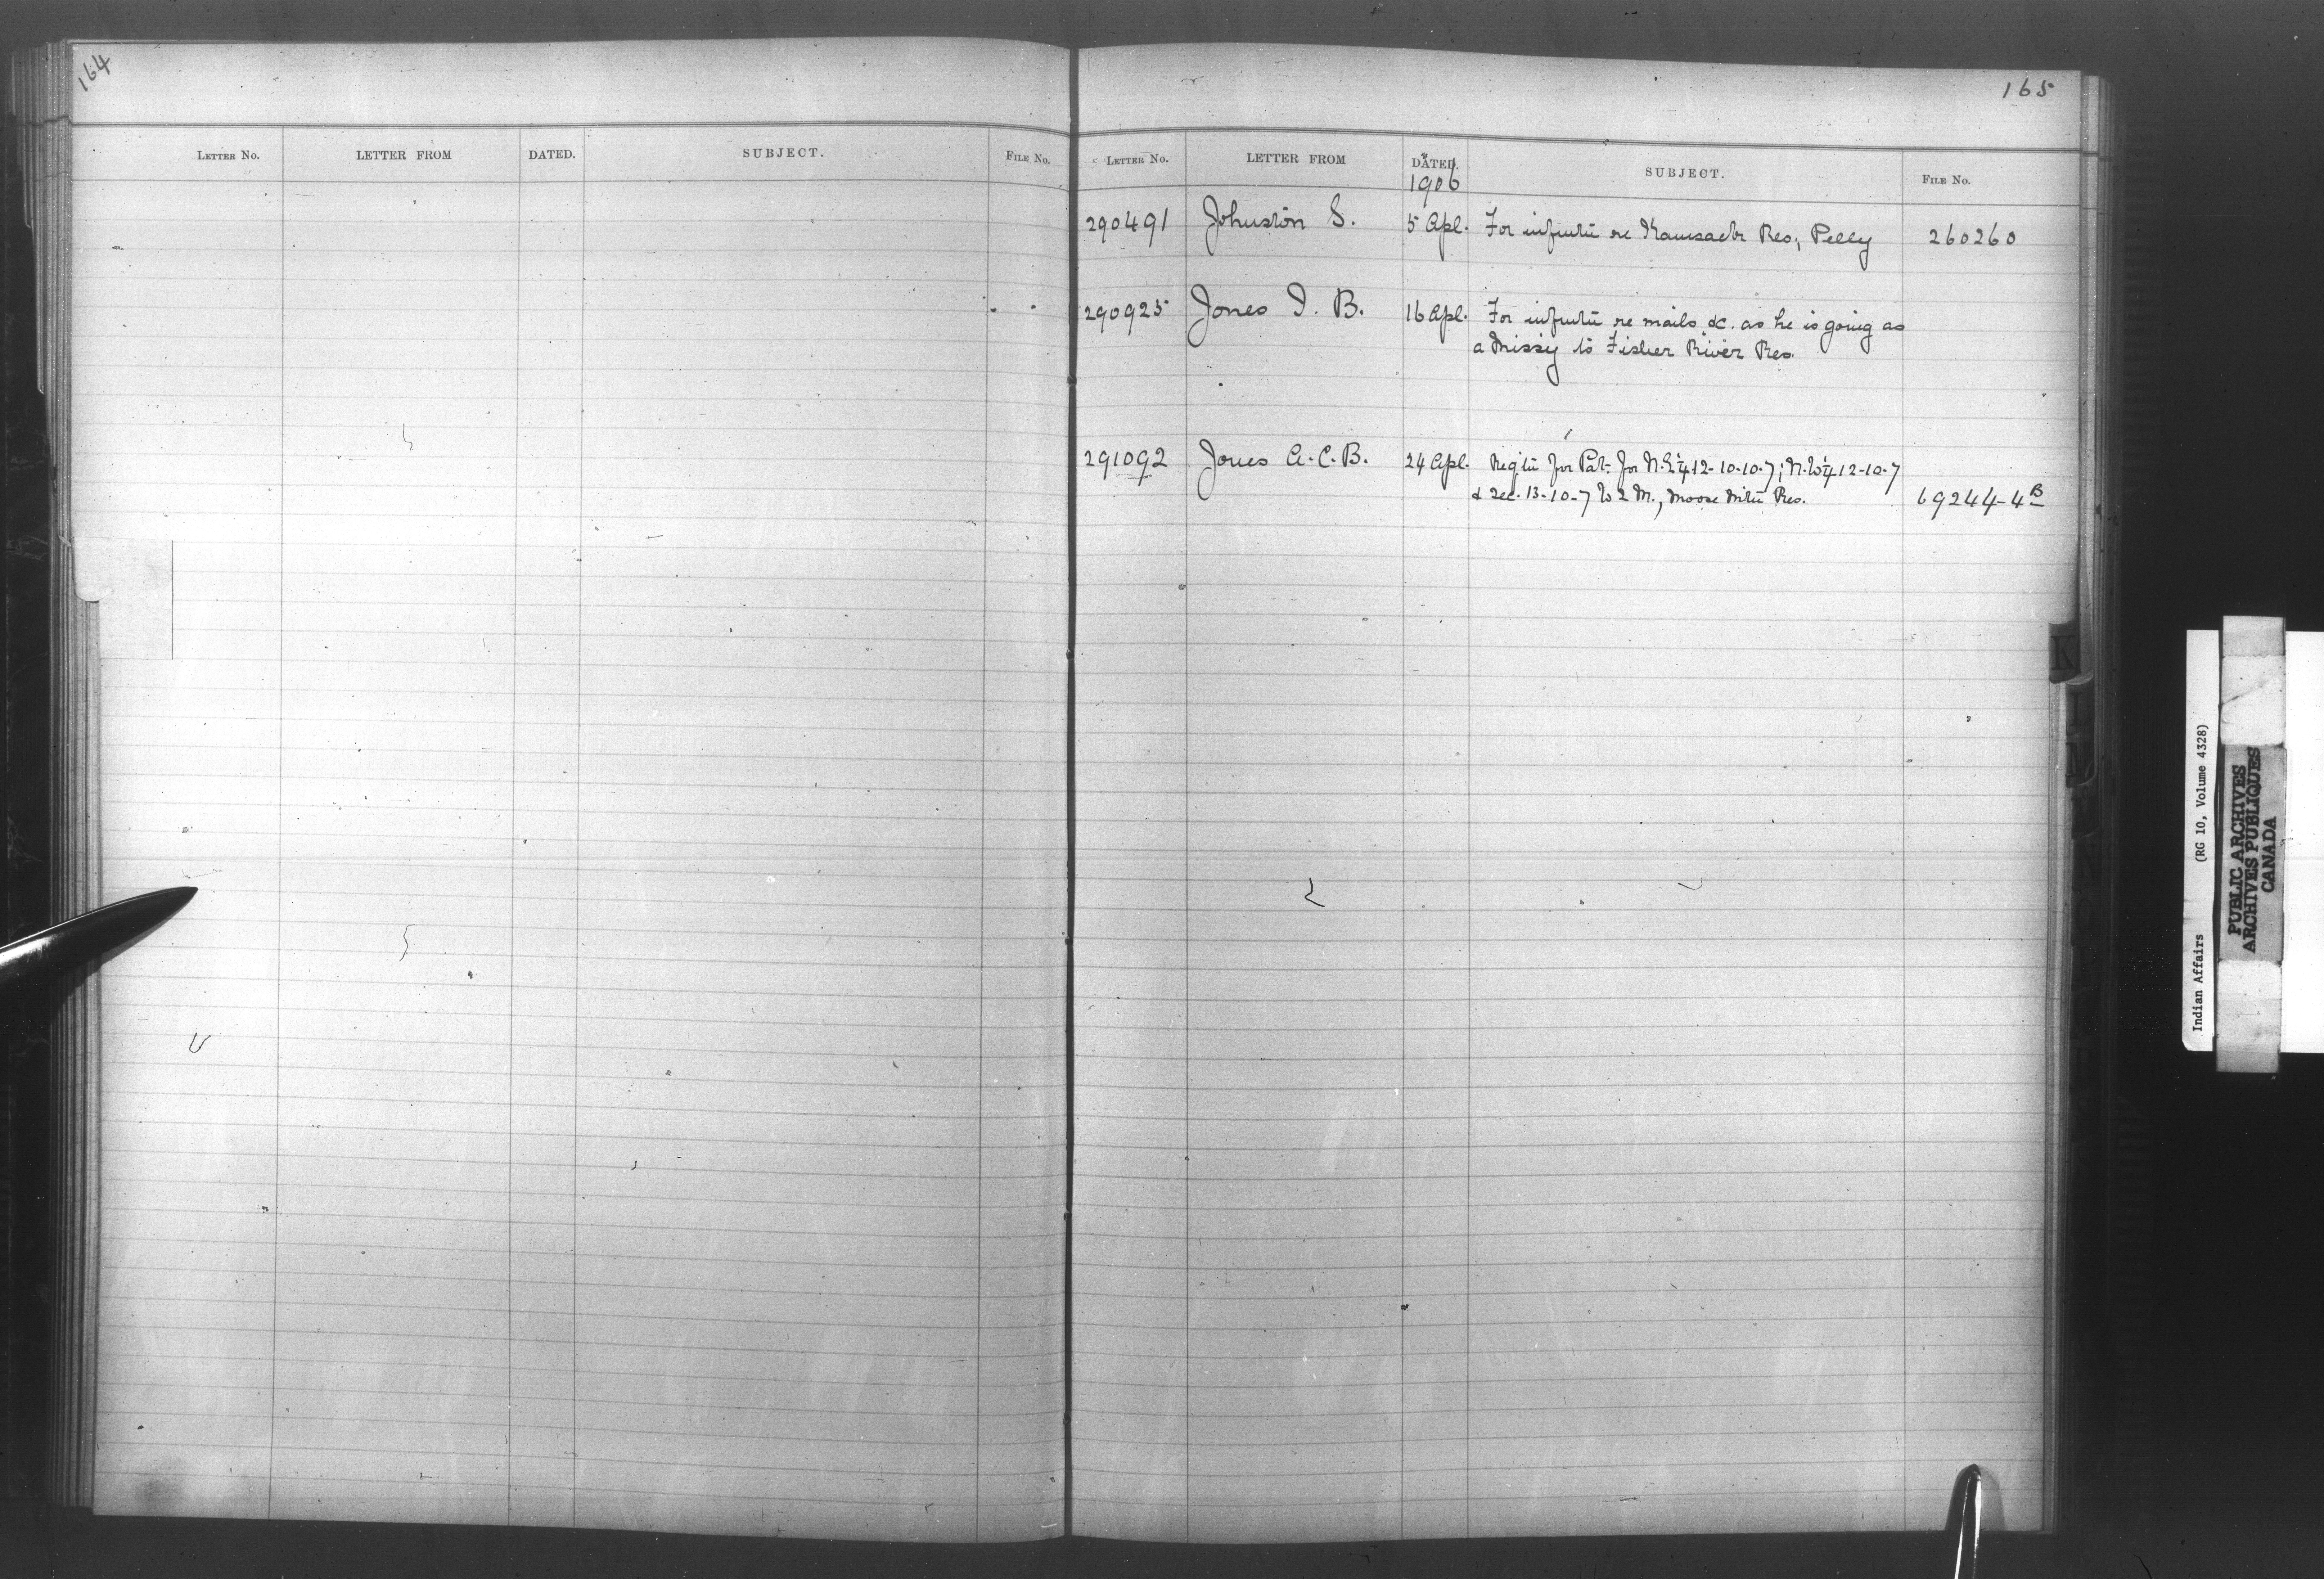 164
LETTER NO. LETTER FROM DATED. SUBJECT. FILE NO.
165
LETTER NO. LETTER FROM DATED. SUBJECT. FILE NO.
1906
290491 Johnston S. 5 Apl. For infmtn re Kamsack Res, Pelly 260260
290925 Jones I. B. 16 Apl. For infmtn re mails &c. as he is going as
a Missy to Fisher River Res.
291092 Jones A. C. B. 24 Apl. for Pat. for N.E¼ 12-10-7; N.W¼ 12-10-7
& Sec. 13-10-7 W 2 M., Moose Mtn Res. 69244-4B
K
L
M
N
Indian Affairs (RG 10, Volume 4328)
PUBLIC ARCHIVES
ARCHIVES PUBLIQUES
CANADA